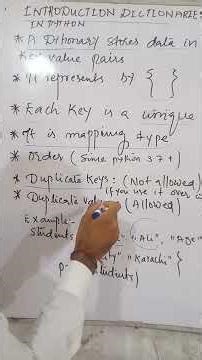 INTRODUCTION DICTIONARIES
IN PYTHON
* A Ditionary stores data in
value pairs
* It represents by { }
* Each Key is a unique
* It is mapping type
* Order (Since python 3.7+)
* Duplicate Keys: (Not allowed)
If you use it over
* Duplicate (Allowed)
Example
Students "Ali", "Age"
"Karachi" }